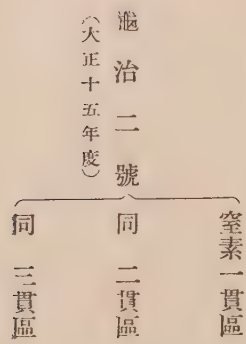 龜治二號
(大正十五年度)
窒素一貫區
同 二貫區
同 三貫區